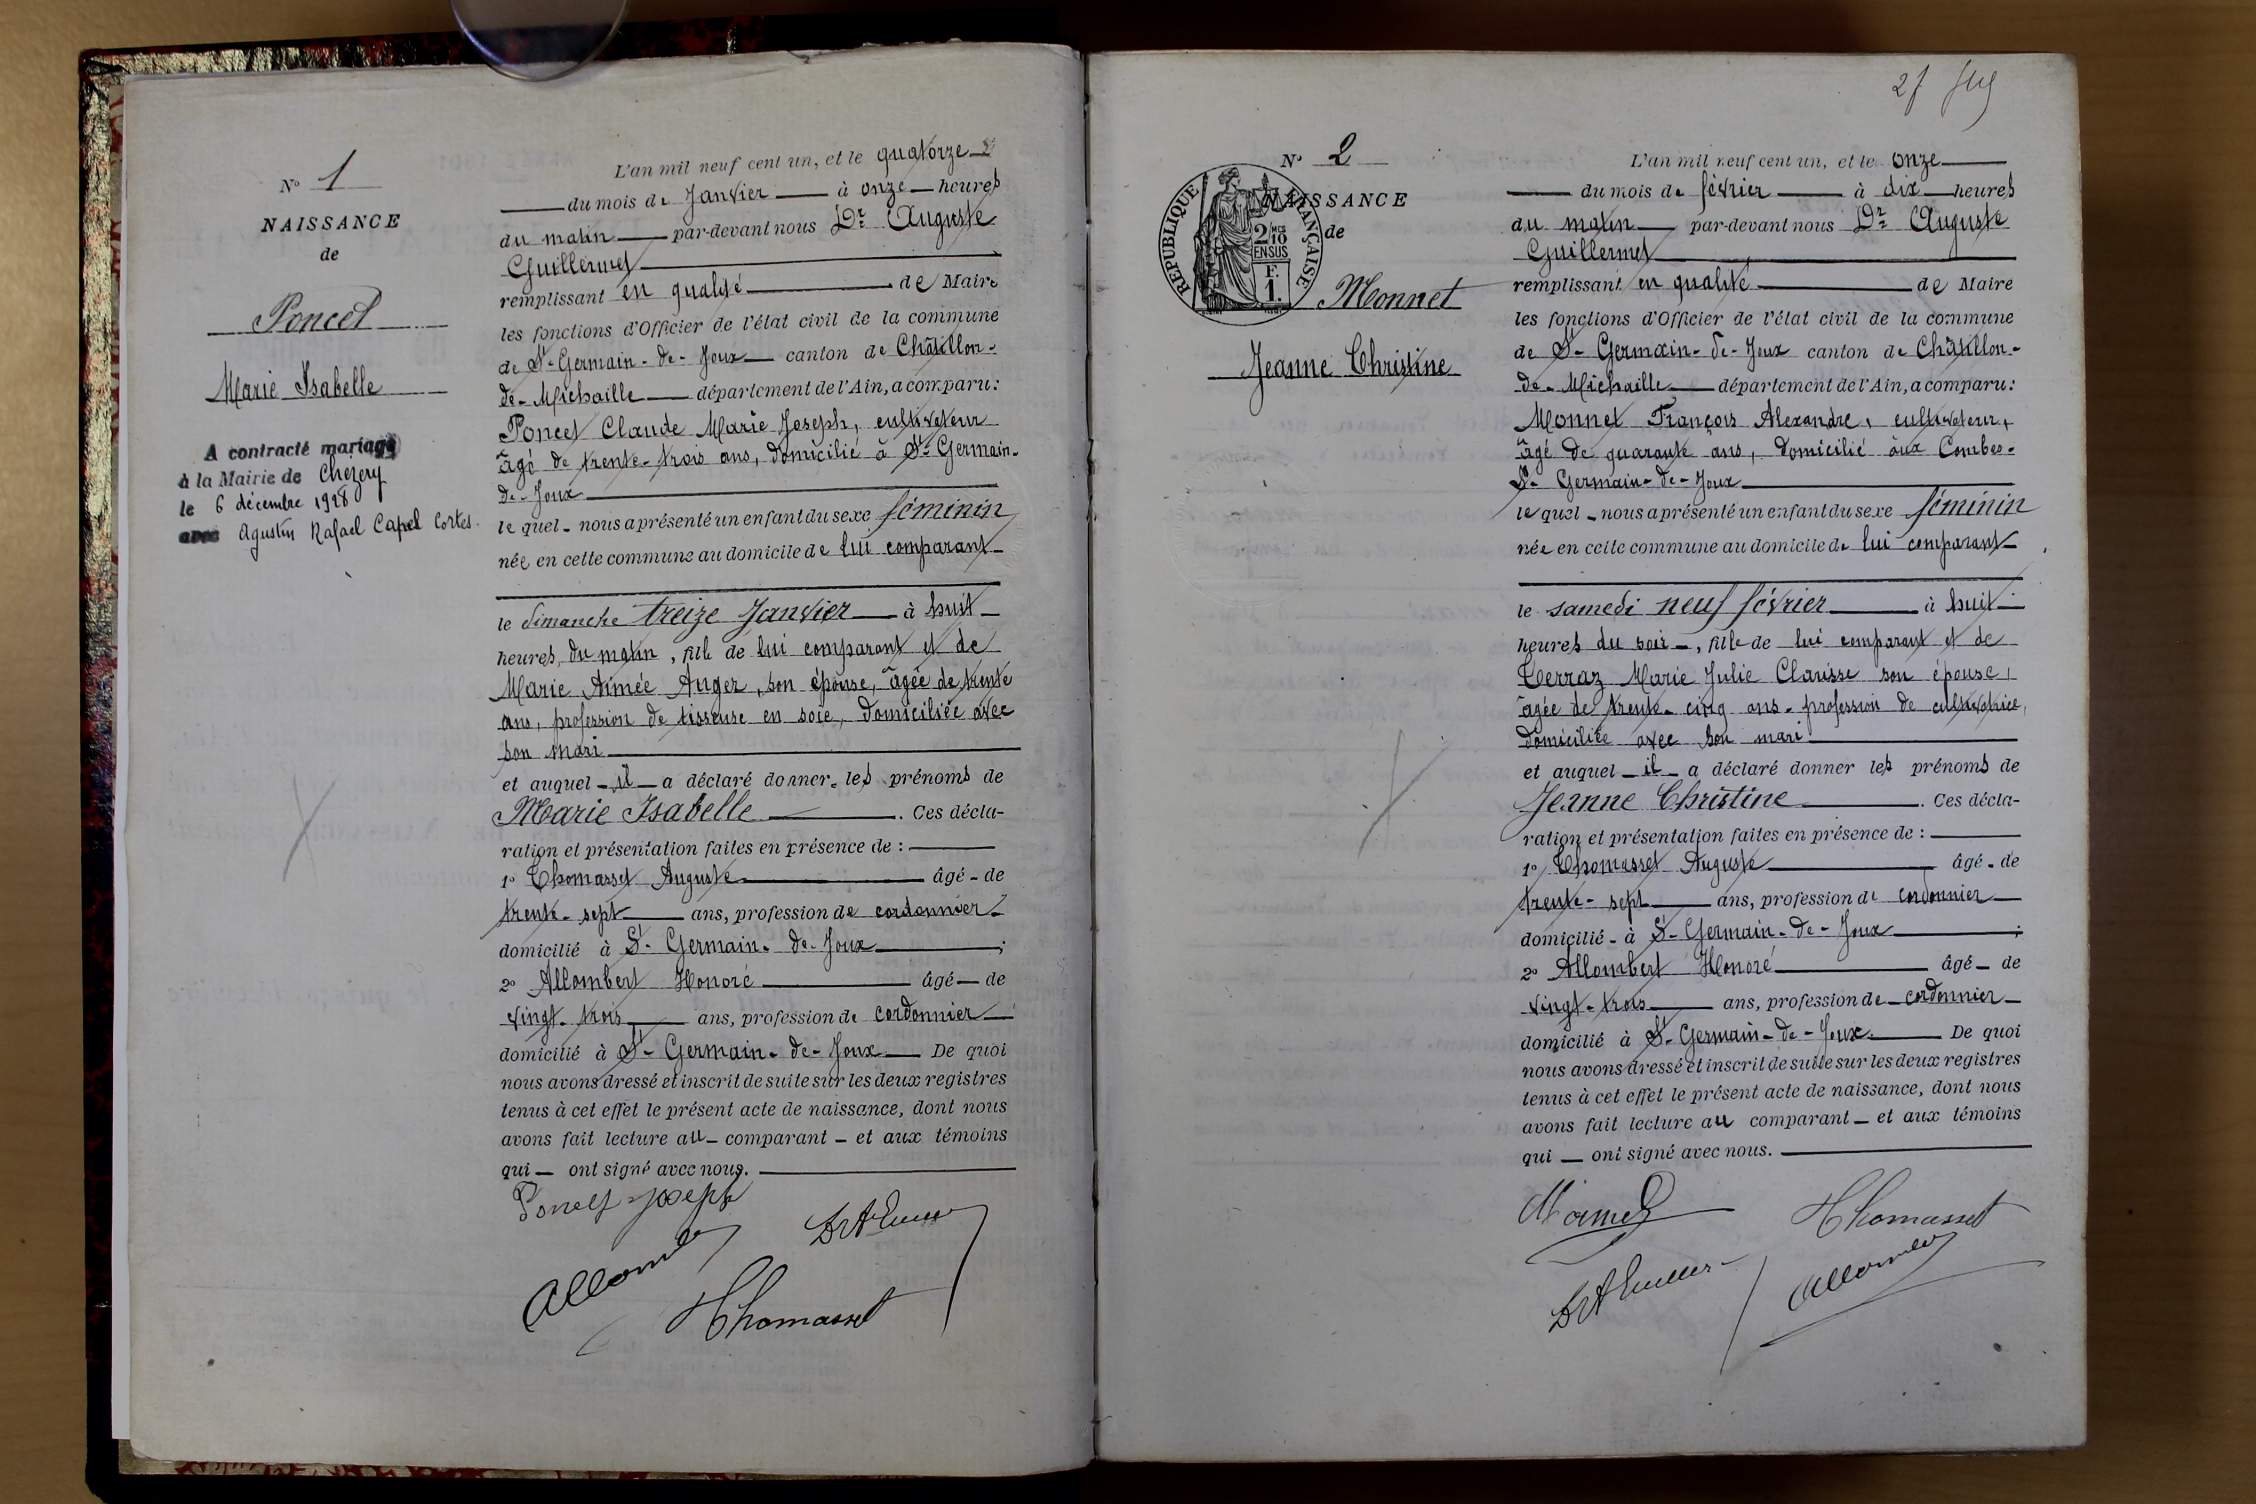 N° 1
NAISSANCE
de
Poncet
Marie Isabelle
A contracté mariage
à la Mairie de Chézery
le 6 décembre 1928
avec Agustin Rafael Capel Cortes.
L'an mil neuf cent un, et le quatorze
du mois de Janvier à onze heures
du matin par-devant nous Dr Auguste
Guillermet
remplissant en qualité de Maire
les fonctions d'Officier de l'état civil de la commune
de St-Germain-de-Joux canton de Châtillon-
de-Michaille département de l'Ain, a comparu:
Poncet Claude Marie Joseph, cultivateur
âgé de trente-trois ans, domicilié à St-Germain-
de-Joux
le quel nous a présenté un enfant du sexe féminin
née en cette commune au domicile de lui comparant
le dimanche treize Janvier à huit
heures du matin, fille de lui comparant et de
Marie Aimée Auger, son épouse, âgée de trente
ans, profession de tisseuse en soie, domiciliée avec
son mari
et auquel il a déclaré donner les prénoms de
Marie Isabelle. Ces décla-
ration et présentation faites en présence de :
1° Thomasset Auguste âgé de
trente-sept ans, profession de cordonnier
domicilié à St-Germain-de-Joux ;
2° Allombert Honoré âgé de
vingt-trois ans, profession de cordonnier
domicilié à St-Germain-de-Joux De quoi
nous avons dressé et inscrit de suite sur les deux registres
tenus à cet effet le présent acte de naissance, dont nous
avons fait lecture au comparant et aux témoins
qui ont signé avec nous.
Poncet Joseph
Thomasset
N° 2
NAISSANCE
de
RÉPUBLIQUE FRANÇAISE
2/10
EN SUS
F.
1.
Monnet
Jeanne Christine
L'an mil neuf cent un, et le onze
du mois de février à dix heures
du matin par-devant nous Dr Auguste
Guillermet
remplissant en qualité de Maire
les fonctions d'Officier de l'état civil de la commune
de St-Germain-de-Joux canton de Châtillon-
de-Michaille département de l'Ain, a comparu:
Monnet François Alexandre, cultivateur,
âgé de quarante ans, domicilié aux Combes-
St-Germain-de-Joux
le quel nous a présenté un enfant du sexe féminin
née en cette commune au domicile de lui comparant
le samedi neuf février à huit
heures du soir, fille de lui comparant et de
Terraz Marie Julie Clarisse son épouse,
âgée de trente-cinq ans profession de cultivatrice,
domiciliée avec son mari
et auquel il a déclaré donner les prénoms de
Jeanne Christine. Ces décla-
ration et présentation faites en présence de :
1° Thomasset Auguste âgé de
trente-sept ans, profession de cordonnier
domicilié à St-Germain-de-Joux ;
2° Allombert Honoré âgé de
vingt-trois ans, profession de cordonnier
domicilié à St-Germain-de-Joux. De quoi
nous avons dressé et inscrit de suite sur les deux registres
tenus à cet effet le présent acte de naissance, dont nous
avons fait lecture au comparant et aux témoins
qui ont signé avec nous.
Thomasset